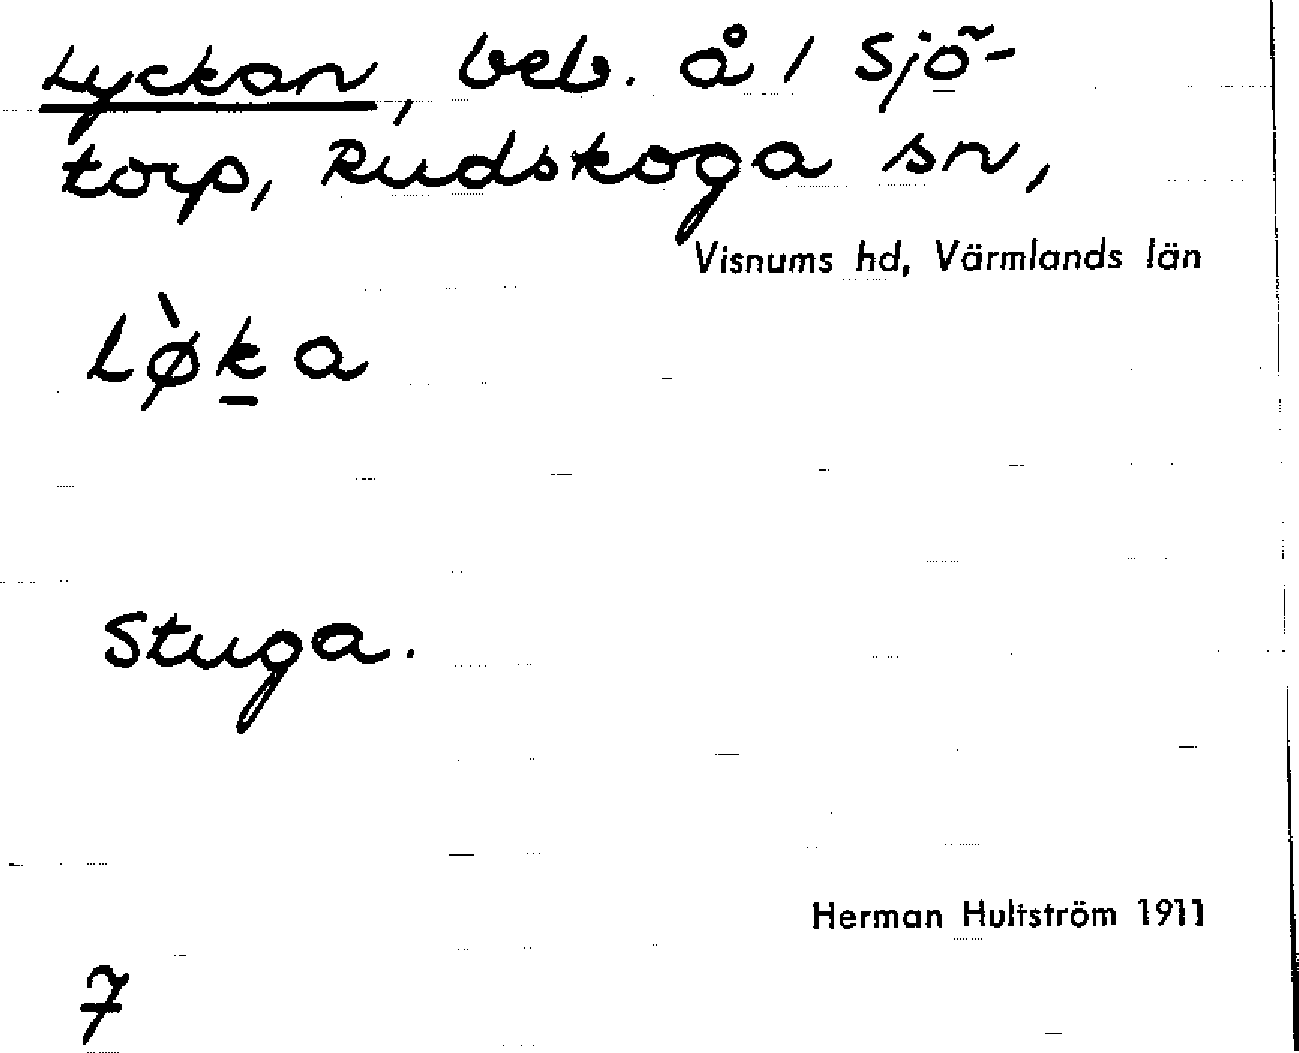 Lyckan, beb. å 1 Sjö-
torp, Rudskoga sn,
Visnums hd, Värmlands län
Lø̀k̲a
Stuga.
Herman Hultström 1911
7